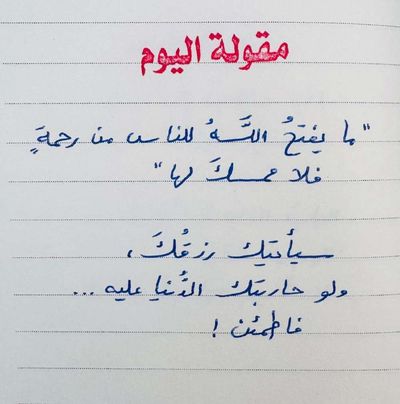 مقولة اليوم
"ما يفتحُ اللَّهُ للناس من رحمةٍ
فلا ممسكَ لها"
سيأتيك رزقُكَ،
ولو حاربتك الدُّنيا عليه ...
فاطمئن !